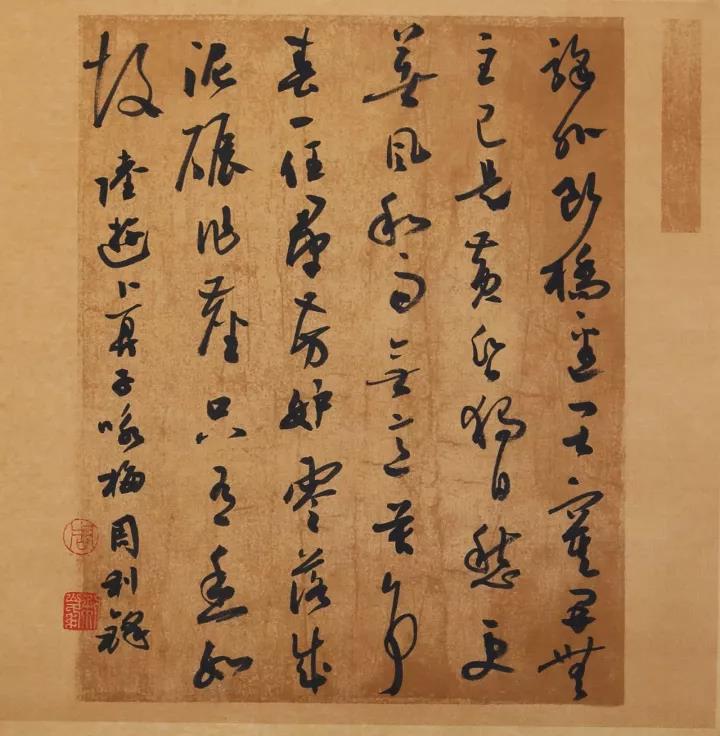 驛外断橋邊寂寞開無
主已是黄昏獨自愁更
著風和雨無意苦争
春一任羣芳妒零落成
泥碾作塵只有香如
故
陸遊卜算子咏梅周利鋒
周